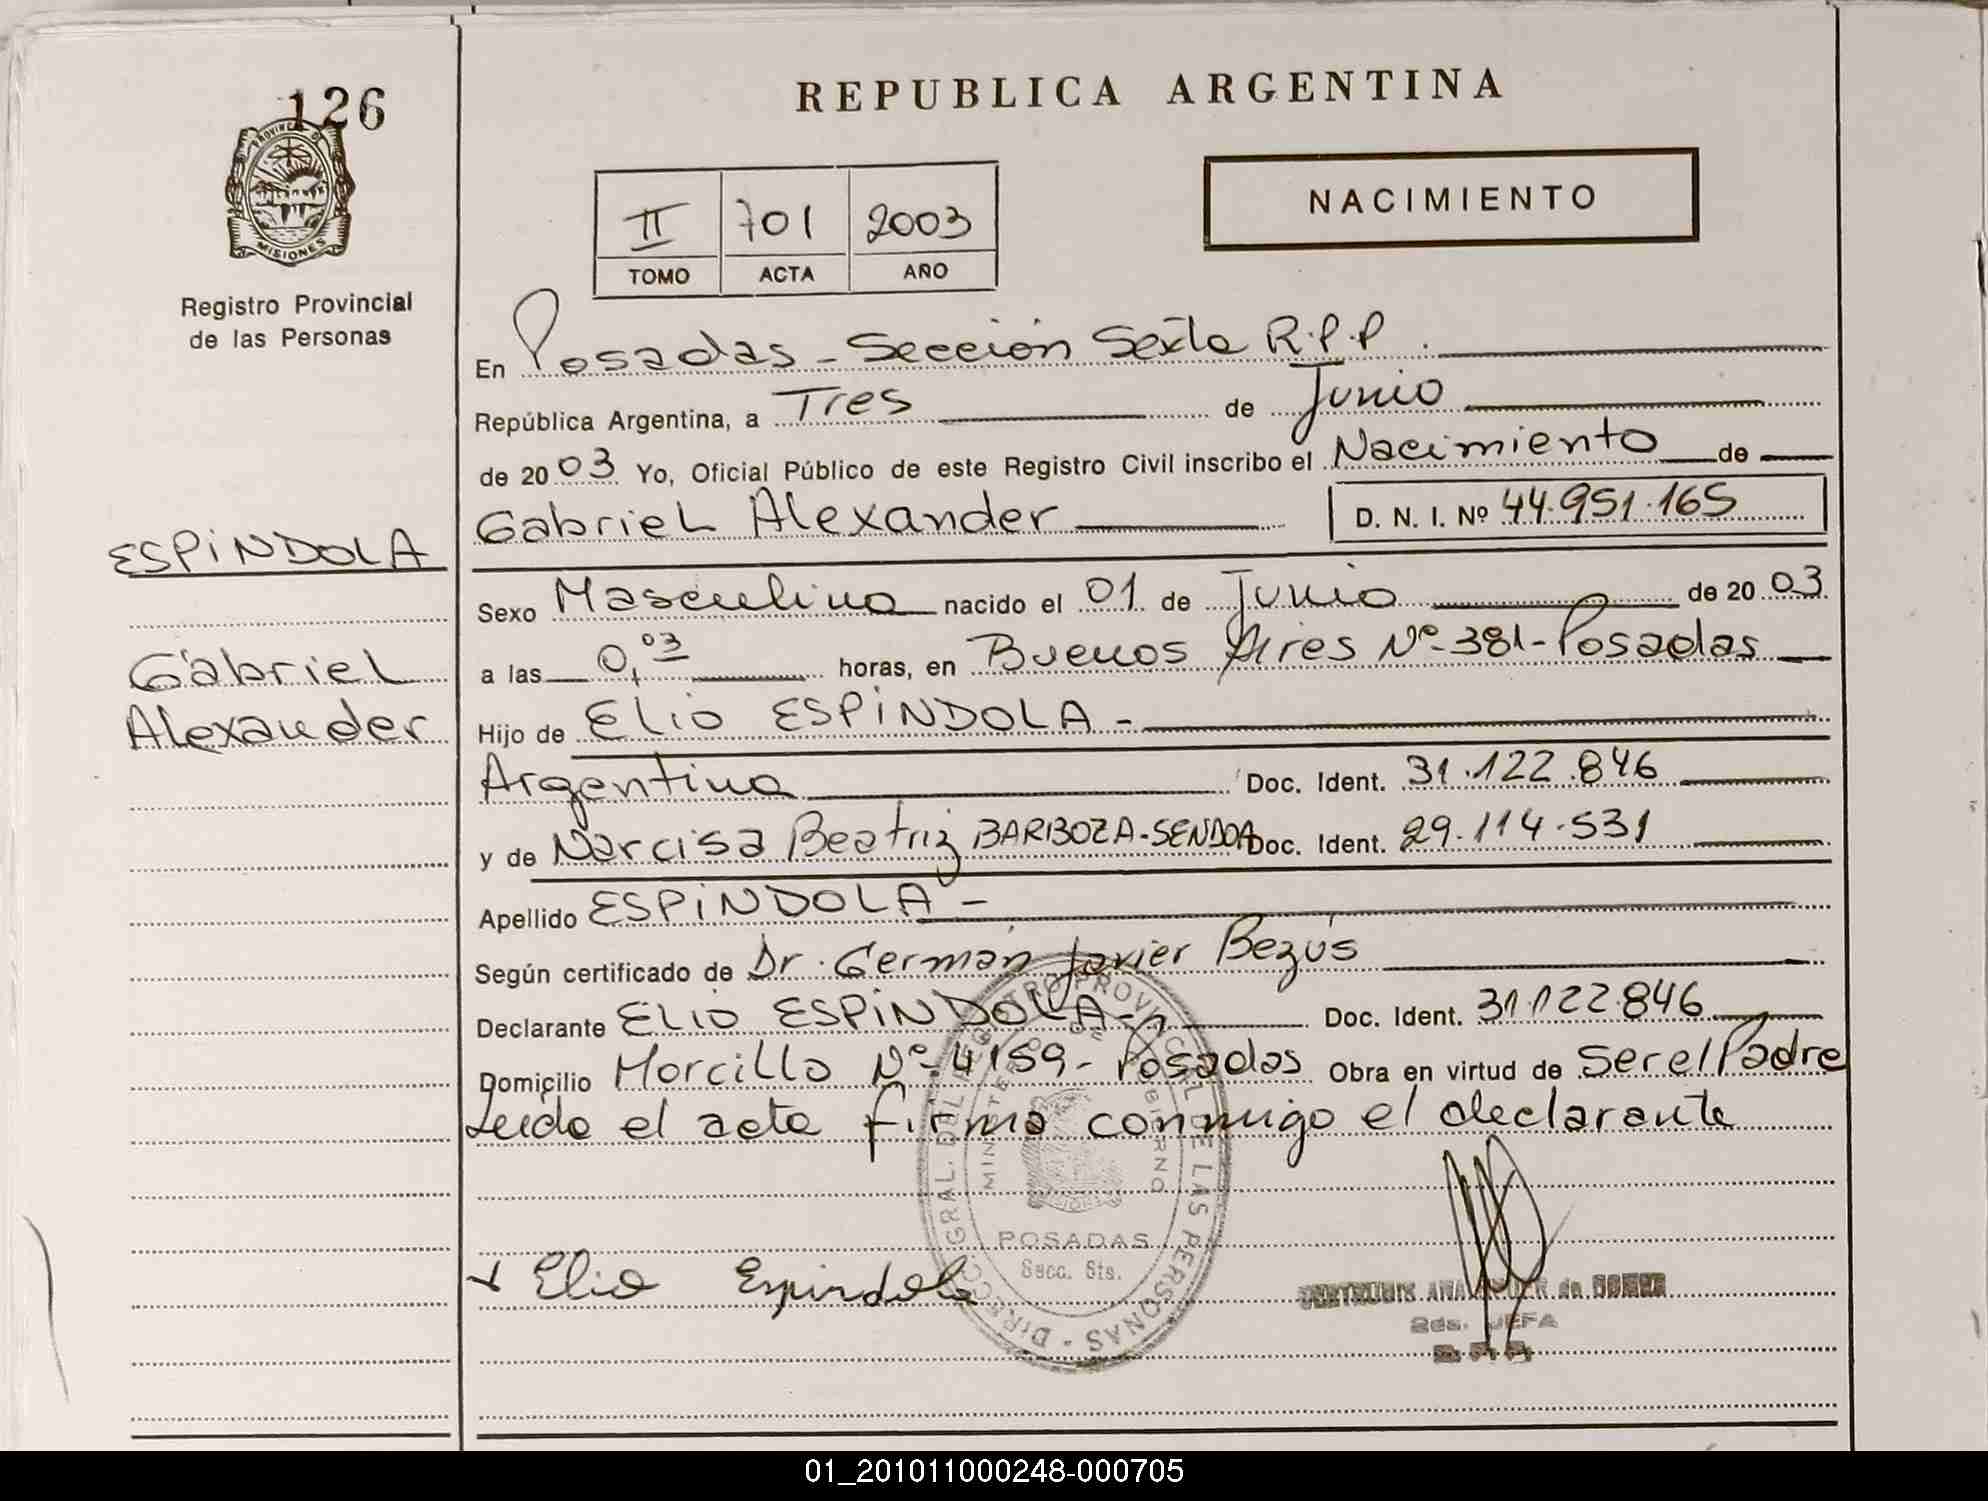 126
PROVINCIA DE
MISIONES
Registro Provincial
de las Personas
REPUBLICA ARGENTINA
NACIMIENTO
II 701 2003
TOMO ACTA AÑO
En Posadas - Sección Sexta R.P.P.
República Argentina, a Tres de Junio
de 2003 Yo, Oficial Público de este Registro Civil inscribo el Nacimiento de
Gabriel Alexander D. N. I. Nº 44.951.165
ESPiNDOLA
Gabriel
Alexander
Sexo Masculino nacido el 01 de Junio de 2003
a las 0,03 horas, en Buenos Aires Nº 381 - Posadas
Hijo de Elio ESPiNDOLA -
Argentino Doc. Ident. 31.122.846
y de Narcisa Beatriz BARBOZA - Doc. Ident. 29.114.531
Apellido ESPiNDOLA -
Según certificado de Dr. Germán Javier Bezús
Declarante ELIO ESPiNDOLA - Doc. Ident. 31.122.846
Domicilio Morcillo Nº 4159 - Posadas Obra en virtud de Ser el Padre
Leida el acta firma conmigo el declarante
Elio Espindola
DIRECC. GRAL. DEL REGISTRO PROVINCIAL DE LAS PERSONAS
MINISTERIO DE GOBIERNO
POSADAS
Secc. 6ta.
2da. JEFA
R. P. P.
01_201011000248-000705